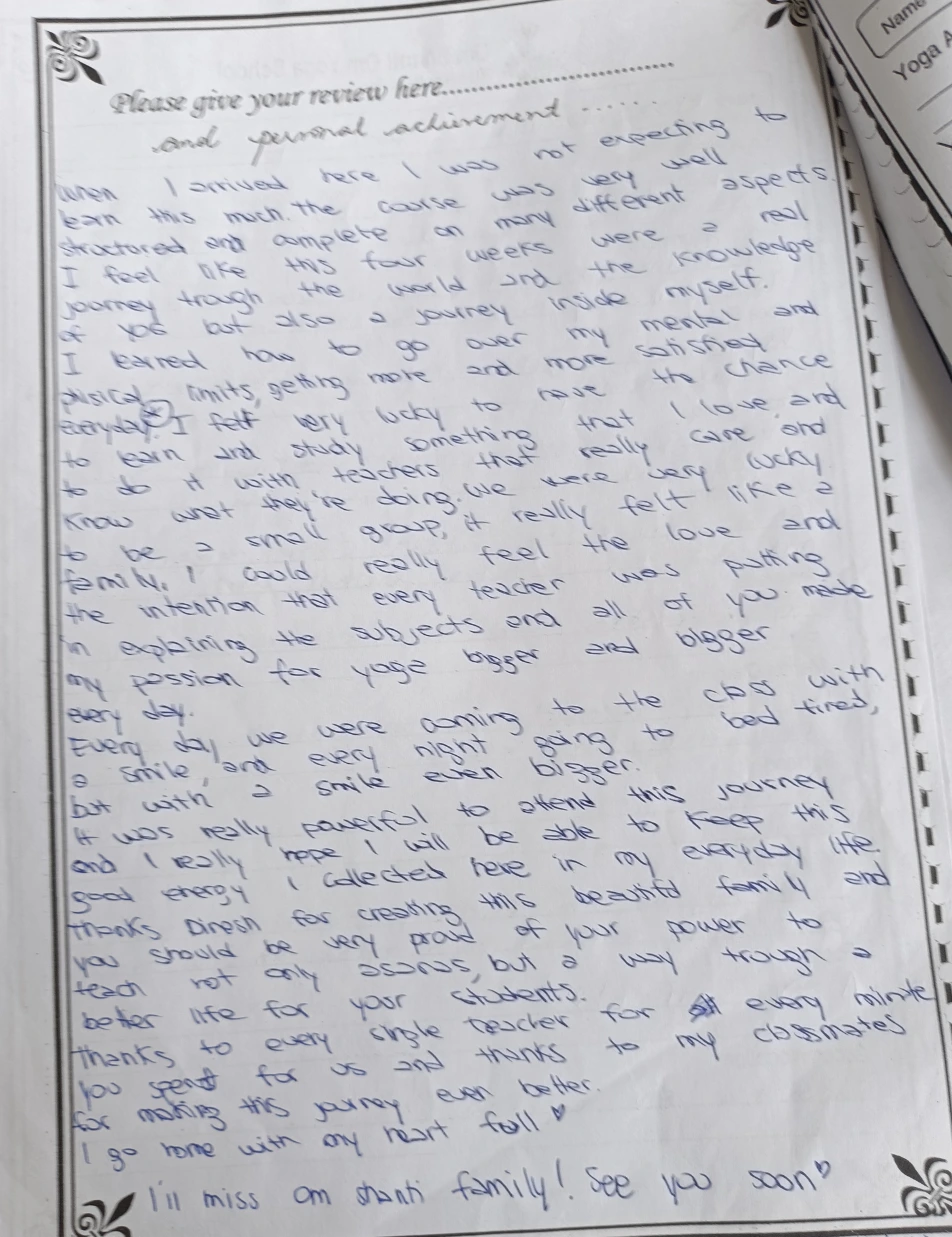 Please give your review here......................................
and personal achievement ......
When I arrived here I was not expecting to
learn this much. The course was very well
structored and complete on many different aspects.
I feel like this four weeks were a real
journey trough the world and the knowledge
of you but also a journey inside myself.
I learned how to go over my mental and
phisical limits, getting more and more satisfied
everyday. I felt very lucky to have the chance
to learn and study something that I love, and
to do it with teachers that really care and
know what they're doing. We were very lucky
to be a small group, it really felt like a
family. I could really feel the love and
the intention that every teacher was putting
in explaining the subjects and all of you made
my passion for yoga bigger and bigger
every day.
Every day we were coming to the class with
a smile, and every night going to bed tired,
but with a smile even bigger.
It was really powerful to attend this journey
and I really hope I will be able to keep this
good energy I collected here in my everyday life.
Thanks Dinesh for creating this beautiful family and
you should be very proud of your power to
teach not only asanas, but a way trough a
better life for your students.
Thanks to every single teacher for every minute
you spent for us and thanks to my classmates
for making this journey even better.
I go home with my heart full ♥
I'll miss Om Shanti family! See you soon ♥
Name
Yoga A